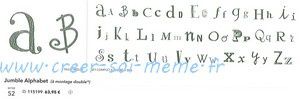 a B
A a B b C c D d E e F f G g H h I i
J j K k L l M m N n O o P p Q q R r
S s T t U u V v W w X x Y y Z z
www.creer-soi-meme.fr
Jumble Alphabet (à montage double*)
52 115199 63,95 €